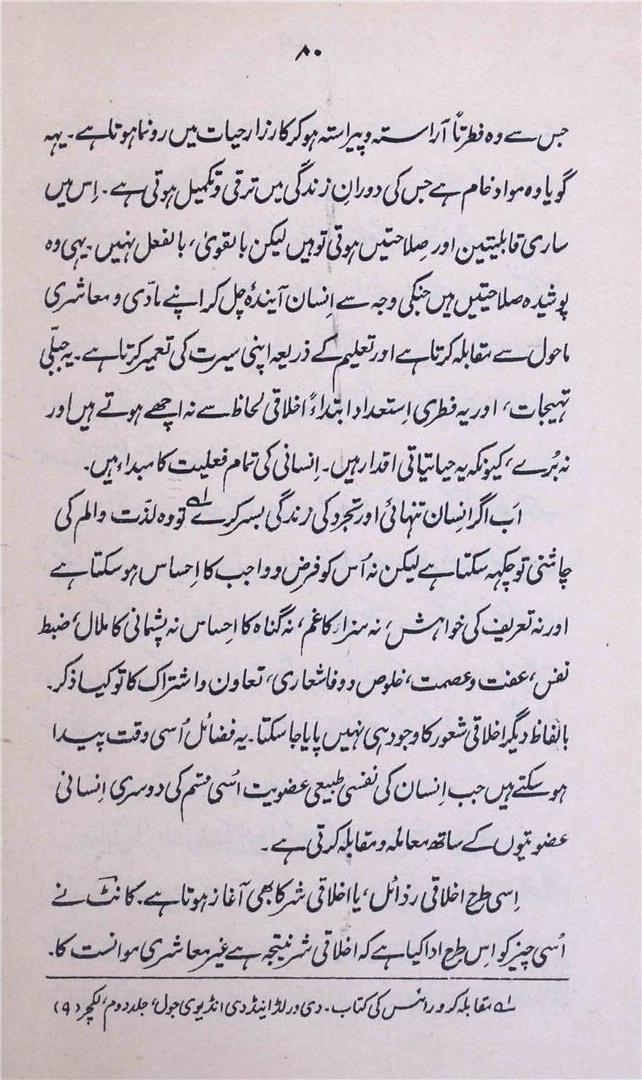 ۸۰
جس سے وہ فطرتاً آراستہ و پیراستہ ہو کر کارزار حیات میں رونما ہوتا ہے۔ یہہ
گویا وہ مواد خام ہے جس کی دورانِ زندگی میں ترقی و تکمیل ہوتی ہے۔ اِس میں
ساری قابلیتیں اور صِلاحتیں ہوتی تو ہیں لیکن بالقویٰ، بالفعل نہیں۔ یہی وہ
پوشیدہ صلاحتیں ہیں جنکی وجہ سے اِنسان آیندۂ چل کر اپنے مادّی و معاشری
ماحول سے مقابلہ کرتا ہے اور تعلیم کے ذریعہ اپنی سیرت کی تعمیر کرتا ہے۔ یہ جبلّی
تہیجات، اور یہ فطری اِستعداد ابتداءً اخلاقی لحاظ سے نہ اچھے ہوتے ہیں اور
نہ بُرے، کیونکہ یہ حیاتیاتی اقدار ہیں۔ اِنسانی کی تمام فعلیت کا مبداء ہیں۔
اَب اگر اِنسان تنہائی اور تجرد کی زندگی بسر کرے ؎۱ تو وہ لذّت و الم کی
چاشنی تو چکہہ سکتا ہے لیکن نہ اُس کو فرض و واجب کا اِحساس ہو سکتا ہے
اور نہ تعریف کی خواہش، نہ سزا کا غم، نہ گناہ کا اِحساس نہ پشمانی کا ملال، ضبط
نفس، عفت و عصمت، خلوص و وفا شعاری، تعاون و اشتراک کا تو کیا ذکر۔
بالفاظ دیگر اخلاقی شعور کا وجود ہی نہیں پایا جا سکتا۔ یہ فضائل اُسی وقت پیدا
ہو سکتے ہیں جب اِنسان کی نفسی طبیعی عضویت اُسی قسم کی دوسری اِنسانی
عضویتوں کے ساتھ معاملہ و مقابلہ کرتی ہے۔
اِسی طرح اخلاقی رذائل، یا اخلاقی شر کا بھی آغاز ہوتا ہے۔ کانٹ نے
اُسی چیز کو اِس طرح ادا کیا ہے کہ اخلاقی شر نتیجہ ہے غیر معاشری موانست کا۔
؎۱ مقابلہ کرو رائس کی کتاب۔ دی ورلڈ اینڈ دی انڈیوی جول، جلد دوم، لکچر (۹)